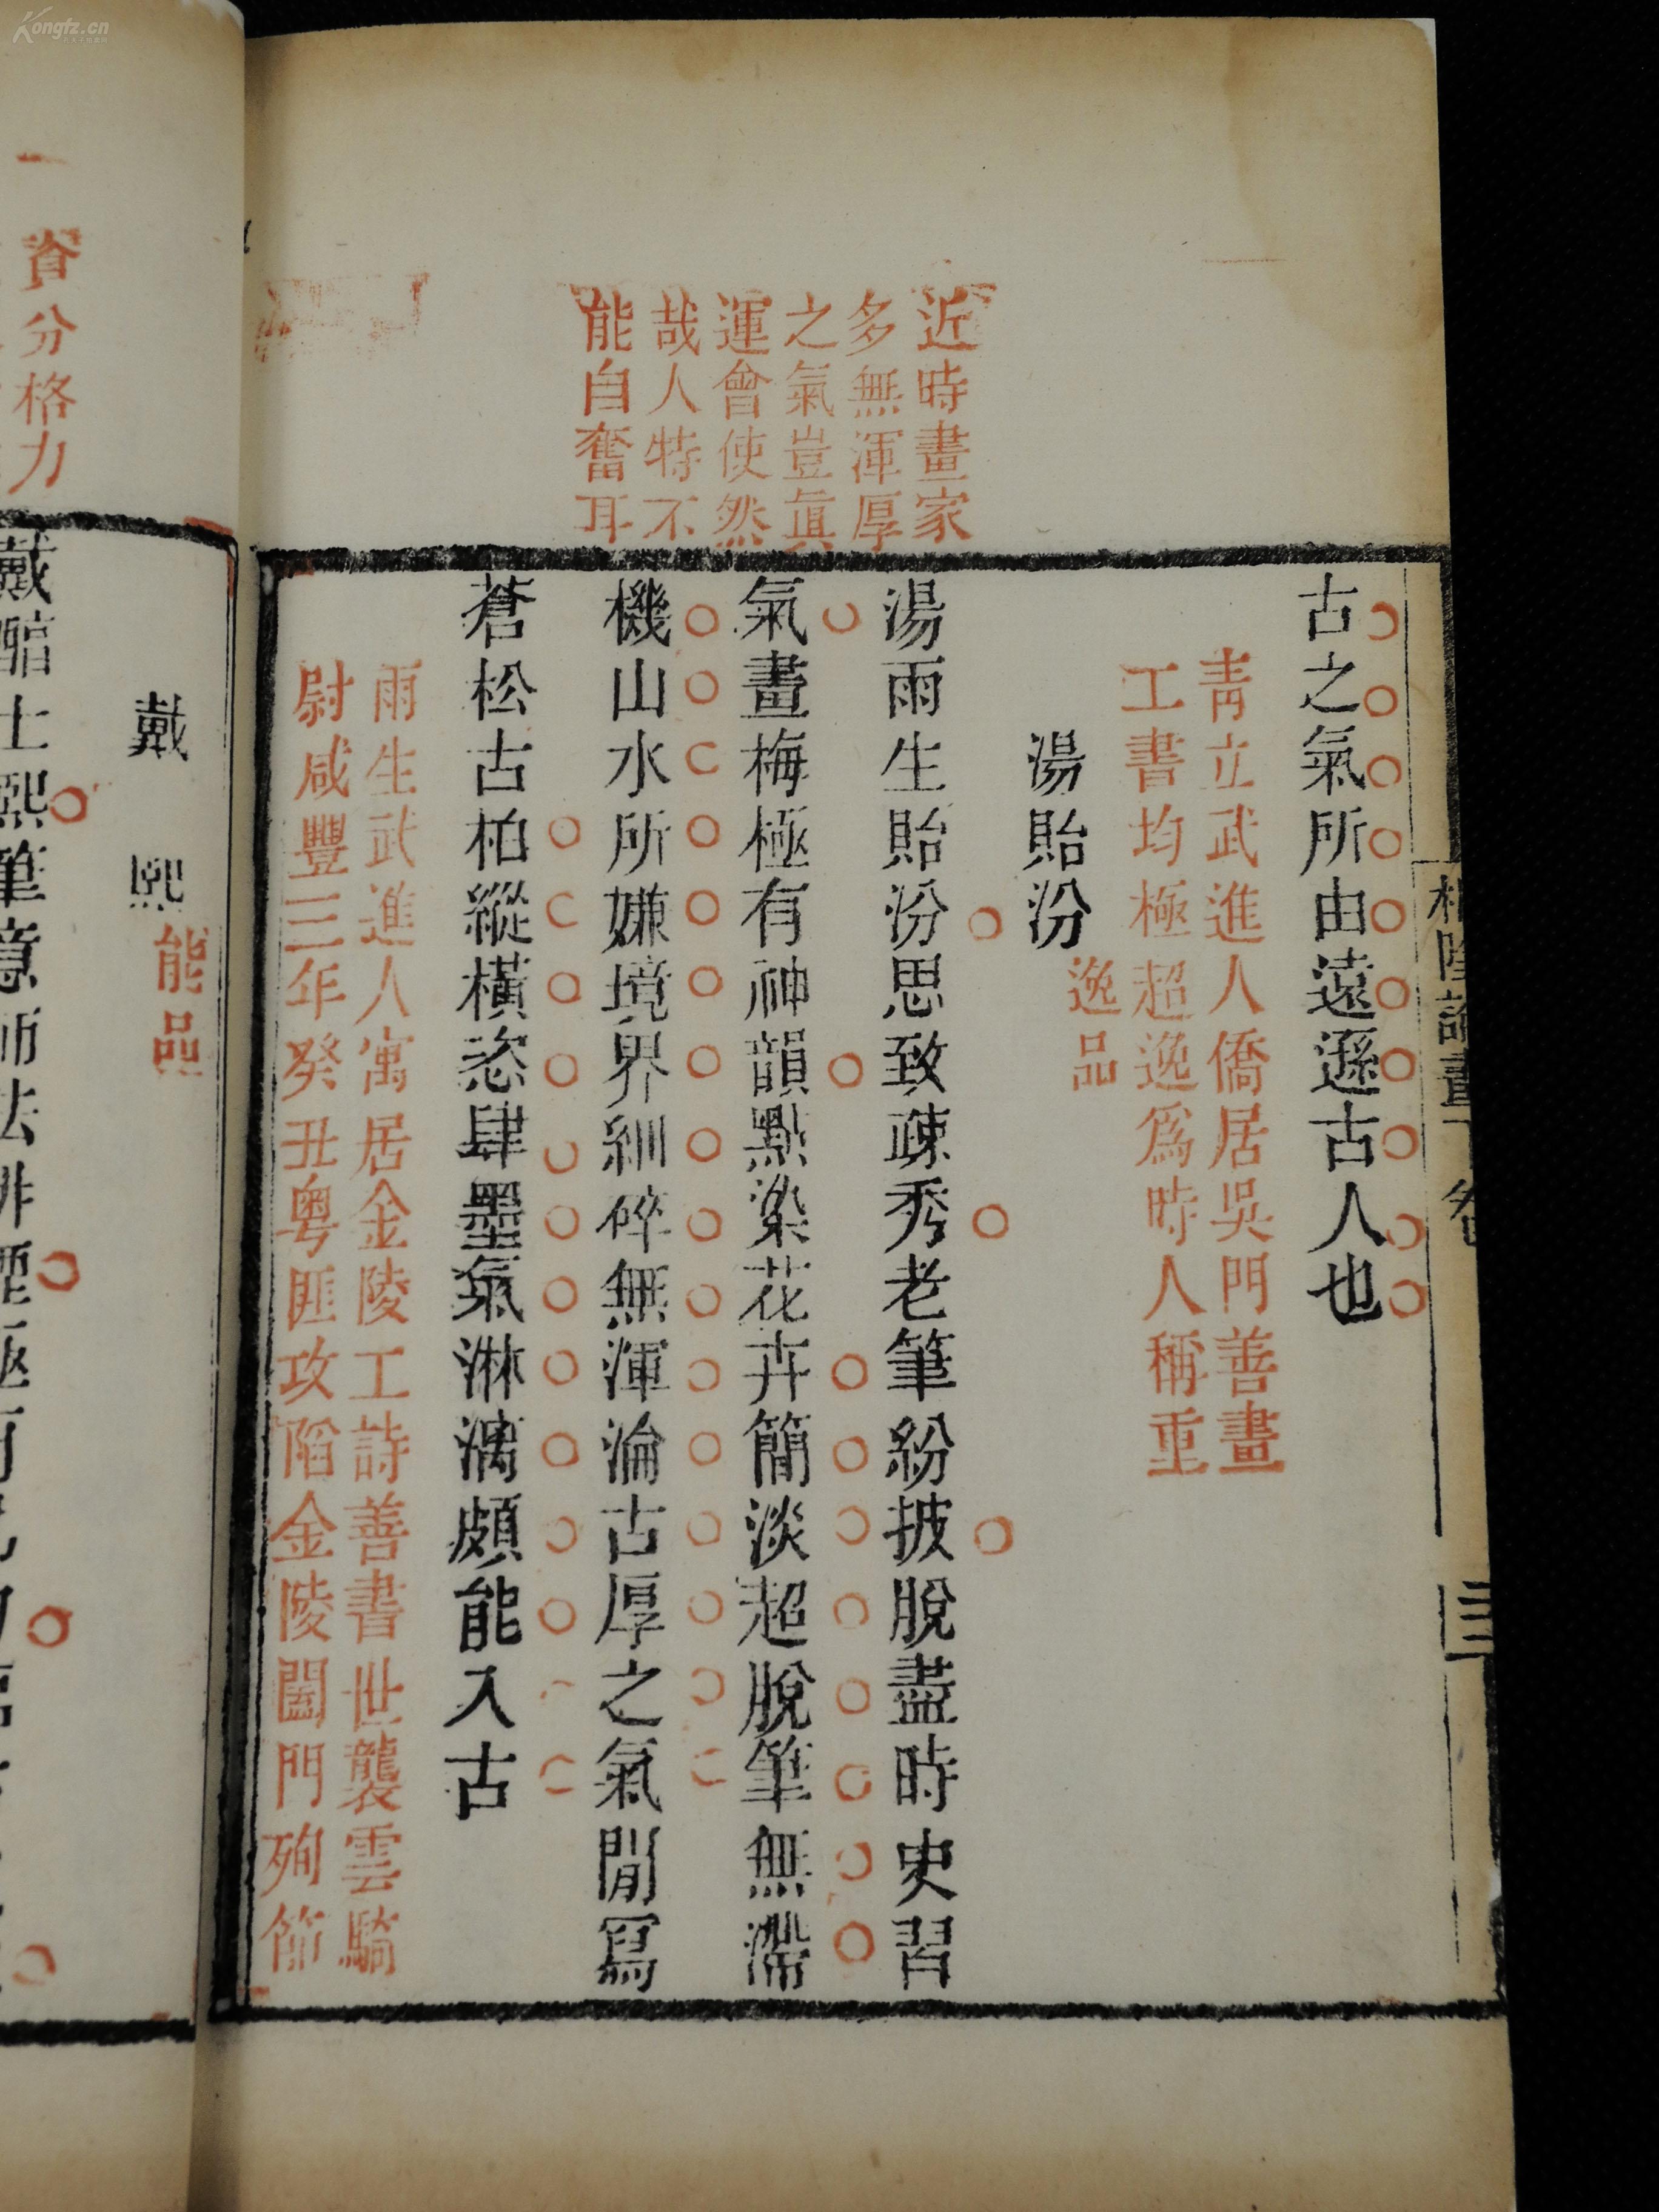 Kongfz.cn
近時畫家
多無渾厚
之氣豈眞
運會使然
哉人特不
能自奮耳
古之氣所由遠遜古人也
青立武進人僑居吳門善畫
工書均極超逸爲時人稱重
湯貽汾
逸品
湯雨生貽汾思致疎秀老筆紛披脫盡時史習
氣畫梅極有神韻點染花卉簡淡超脫筆無滯
機山水所嫌境界紃碎無渾淪古厚之氣閒寫
蒼松古柏縱橫恣肆墨氣淋漓頗能入古
雨生武進人寓居金陵工詩善書世襲雲騎
尉咸豐三年癸丑粵匪攻陷金陵闔門殉節
資分格力
戴熙
能品